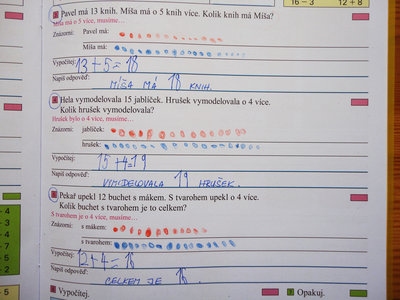 16 − 3 12 + 8
Pavel má 13 knih. Míša má o 5 knih více. Kolik knih má Míša?
Míša má o 5 více, musíme…
Znázorni: Pavel má:
Míša má:
Vypočítej:
13 + 5 = 18
Napiš odpověď:
MÍŠA MÁ 18 KNIH.
Hela vymodelovala 15 jablíček. Hrušek vymodelovala o 4 více.
Kolik hrušek vymodelovala?
Hrušek bylo o 4 více, musíme…
Znázorni: jablíček:
hrušek:
Vypočítej:
15 + 4 = 19
Napiš odpověď:
VYMODELOVALA 19 HRUŠEK.
Pekař upekl 12 buchet s mákem. S tvarohem upekl o 4 více.
Kolik buchet s tvarohem je to celkem?
S tvarohem je o 4 více, musíme…
Znázorni: s mákem:
s tvarohem:
Vypočítej:
12 + 4 = 16
Napiš odpověď:
CELKEM JE 16.
Vypočítej.
? Opakuj.